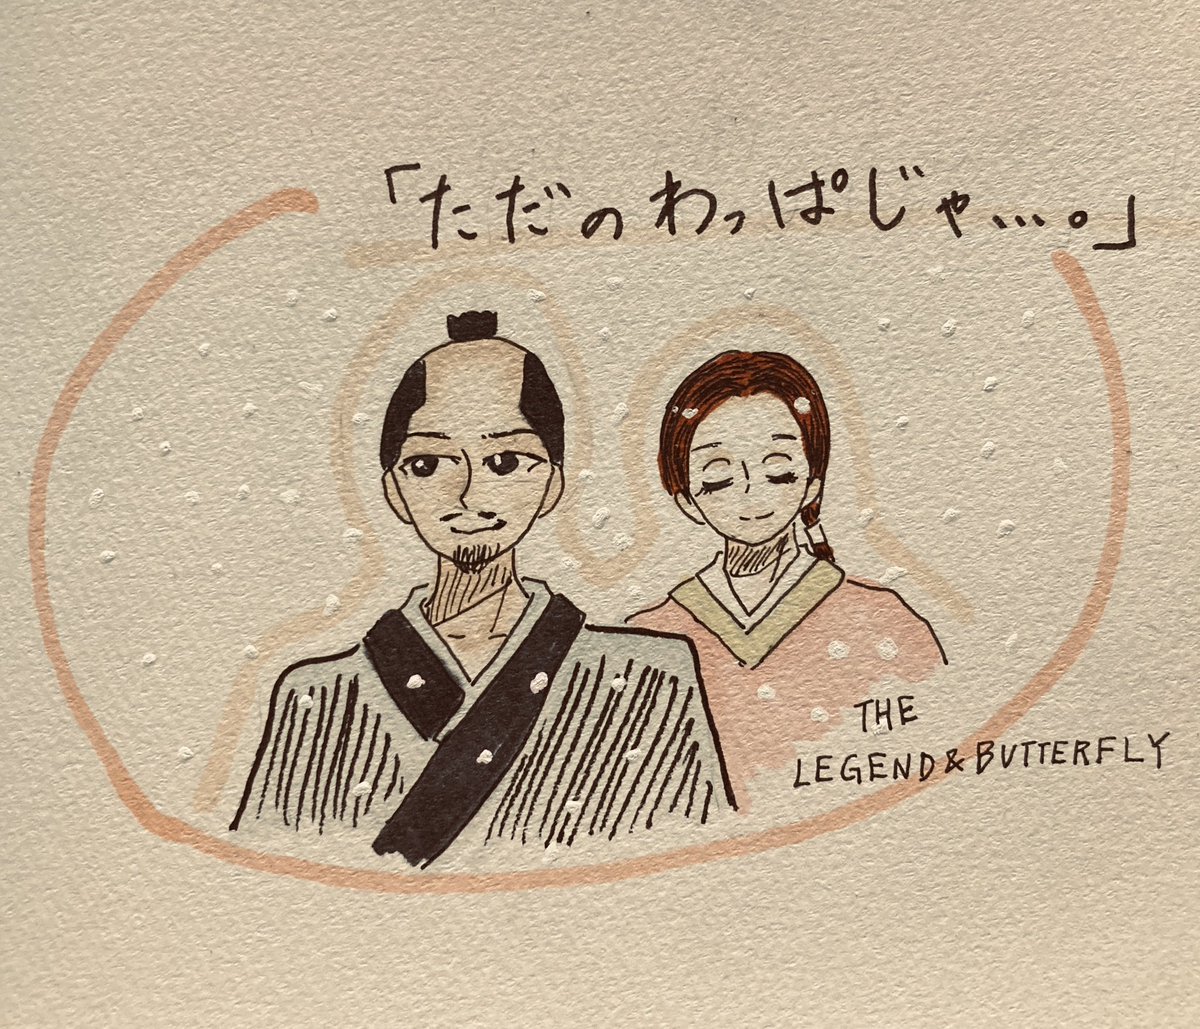 「ただのわっぱじゃ…。」
THE
LEGEND&BUTTERFLY